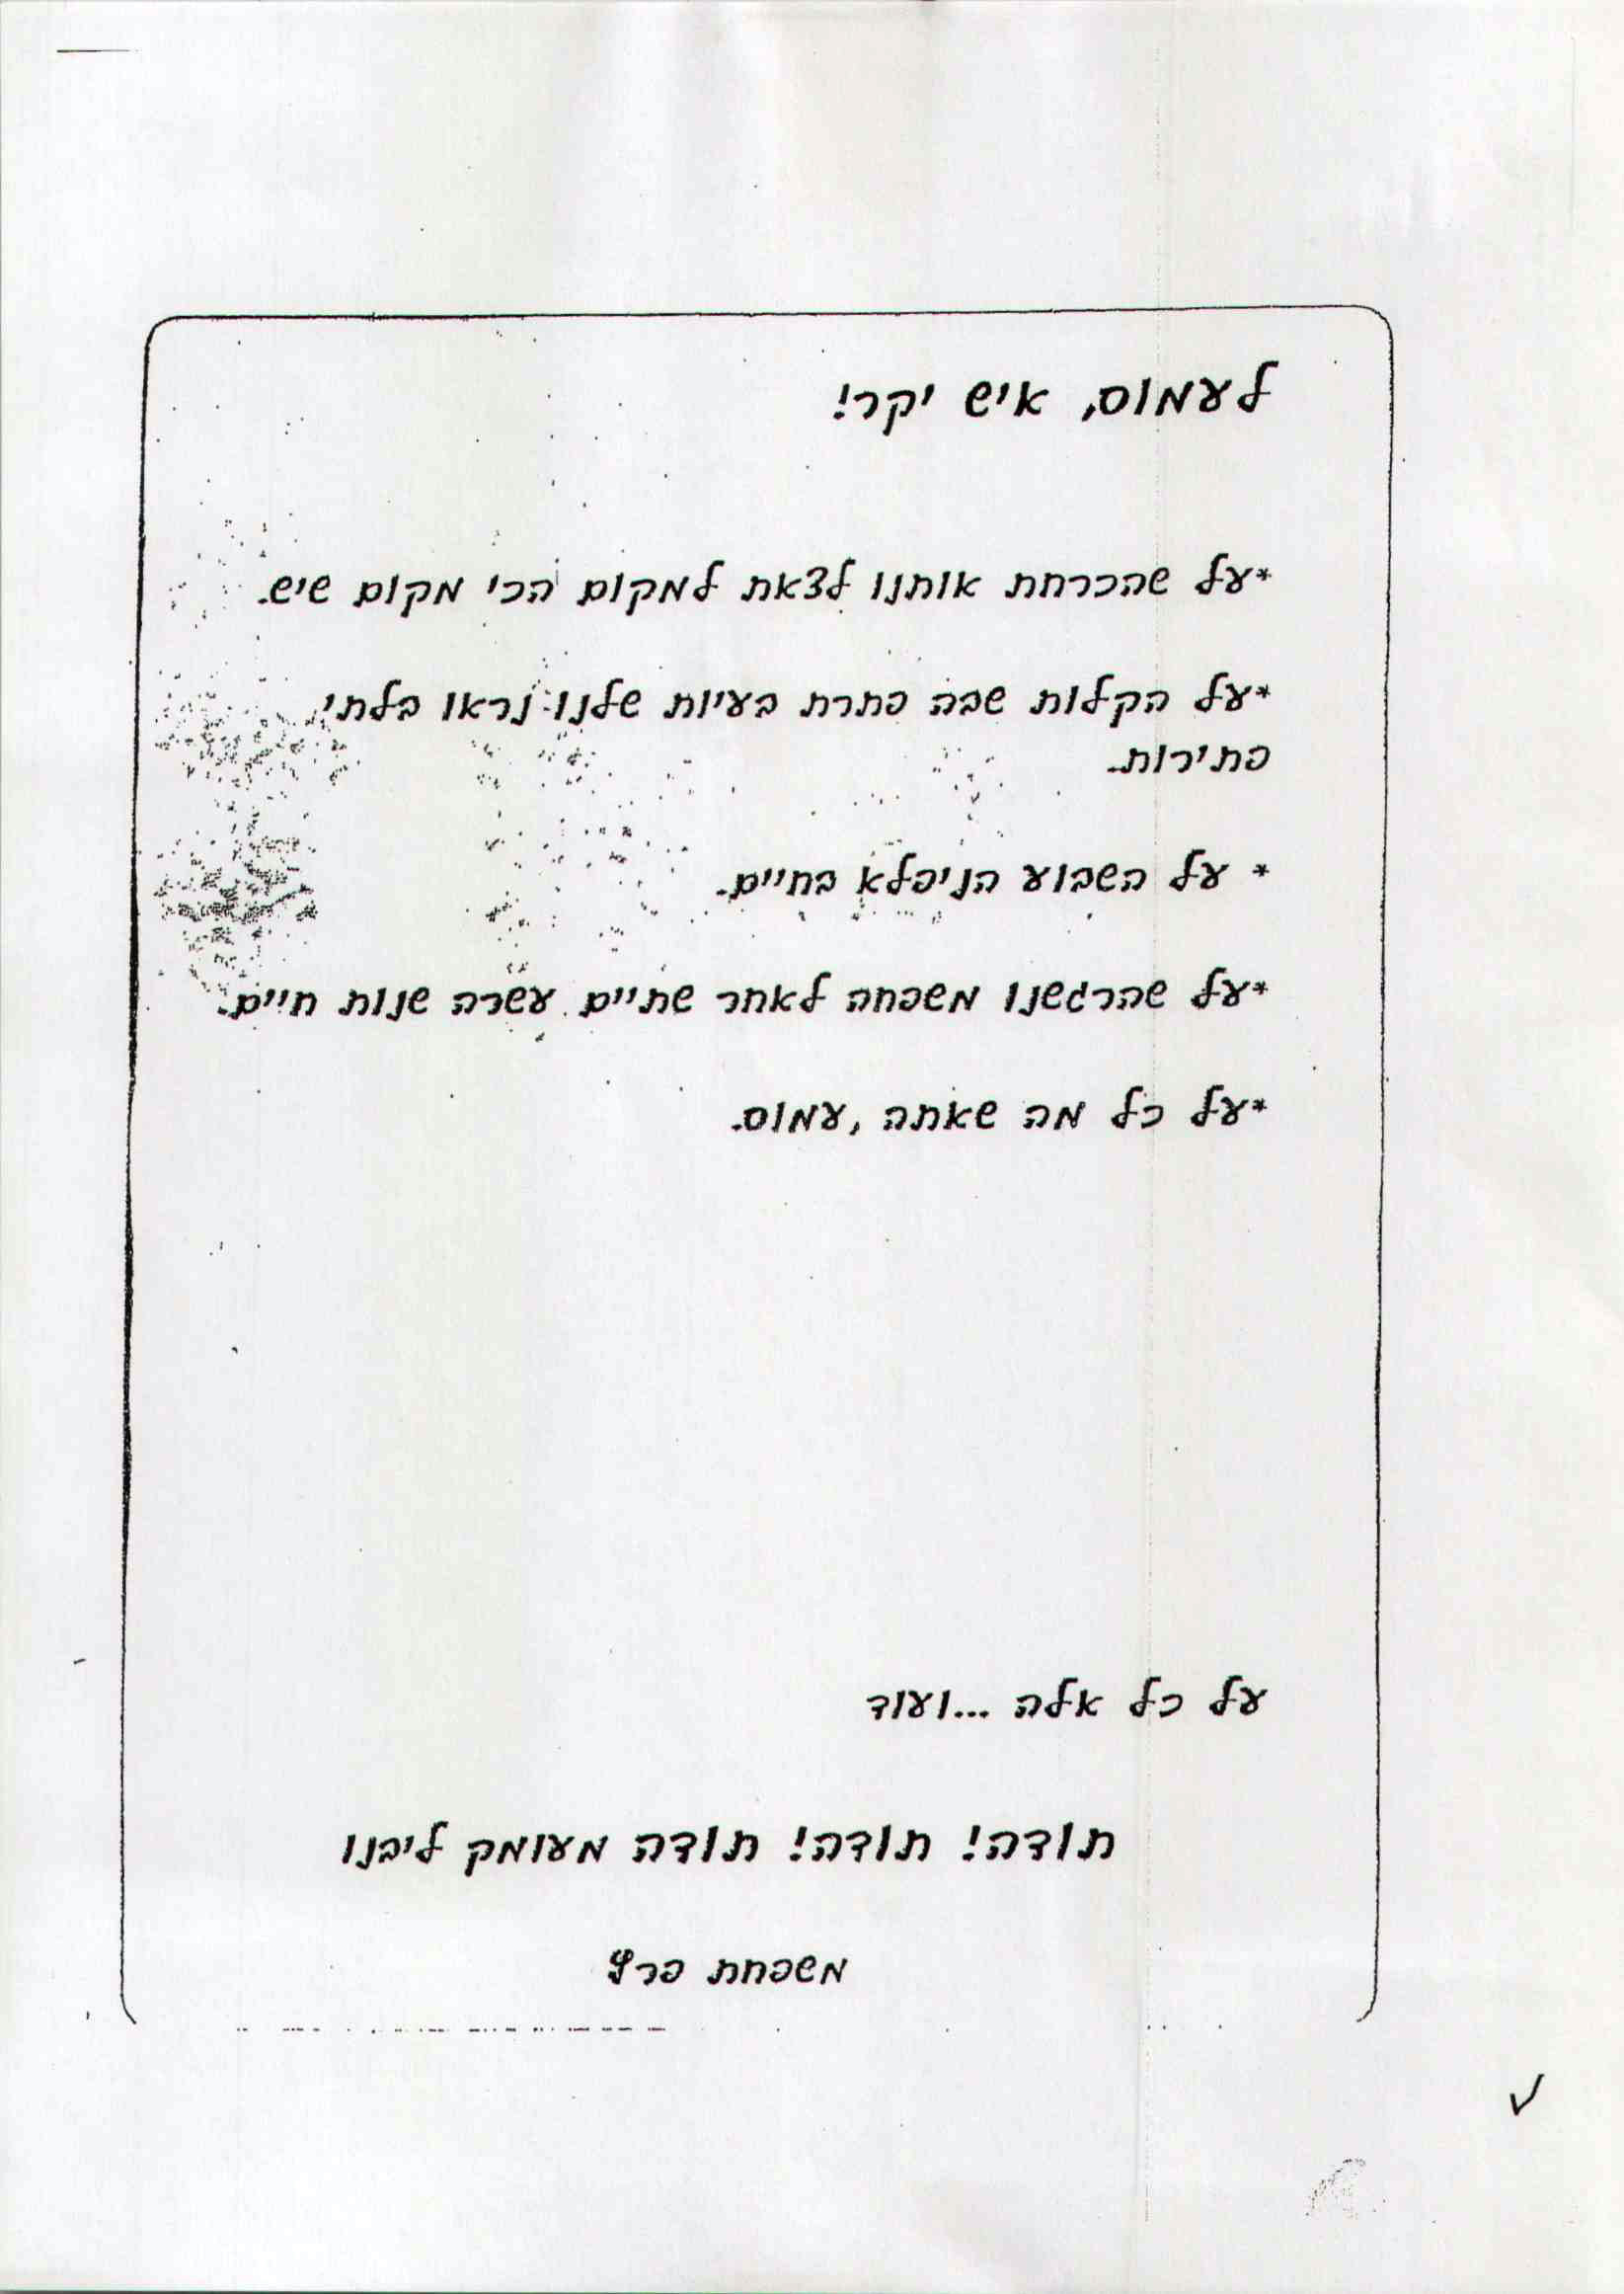 לעמוס, איש יקר!
*על שהכרחת אותנו לצאת למקום הכי מקום שיש.
*על הקלות שבה פתרת בעיות שלנו נראו בלתי
פתירות.
* על השבוע הניפלא בחיים.
*על שהרגשנו משפחה לאחר שתיים עשרה שנות חיים.
*על כל מה שאתה ,עמוס.
על כל אלה ...ועוד
תודה! תודה! תודה מעומק ליבנו
משפחת פרץ